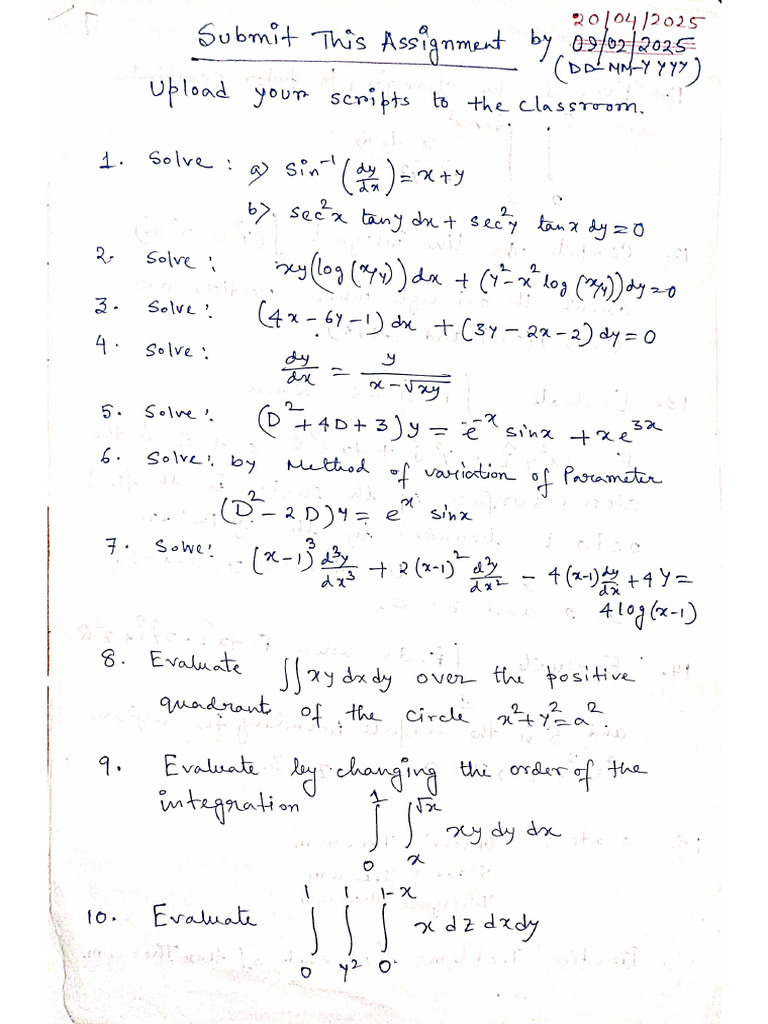 20/04/2025
Submit This Assignment by 09/02/2025
(DD-MM-YYYY)
Upload your scripts to the classroom.
1. Solve : a) sin⁻¹(dy/dx) = x+y
b). sec²x tany dx + sec²y tanx dy = 0
2. Solve : xy(log(x/y))dx + (y²-x² log(x/y))dy = 0
3. Solve : (4x-6y-1)dx + (3y-2x-2)dy = 0
4. Solve : dy/dx = y/(x-√xy)
5. Solve : (D²+4D+3)y = e⁻ˣ sinx + xe³ˣ
6. Solve : by Method of variation of Parameter
(D²-2D)y = eˣ sinx
7. Solve : (x-1)³ d³y/dx³ + 2(x-1)² d²y/dx² - 4(x-1)dy/dx + 4y =
4log(x-1)
8. Evaluate ∬xy dxdy over the positive
quadrant of the circle x²+y²=a².
9. Evaluate by changing the order of the
integration ∫₀¹ ∫ₓ^√x xy dy dx
10. Evaluate ∫₀¹ ∫_y²^1 ∫₀^1-x x dz dxdy